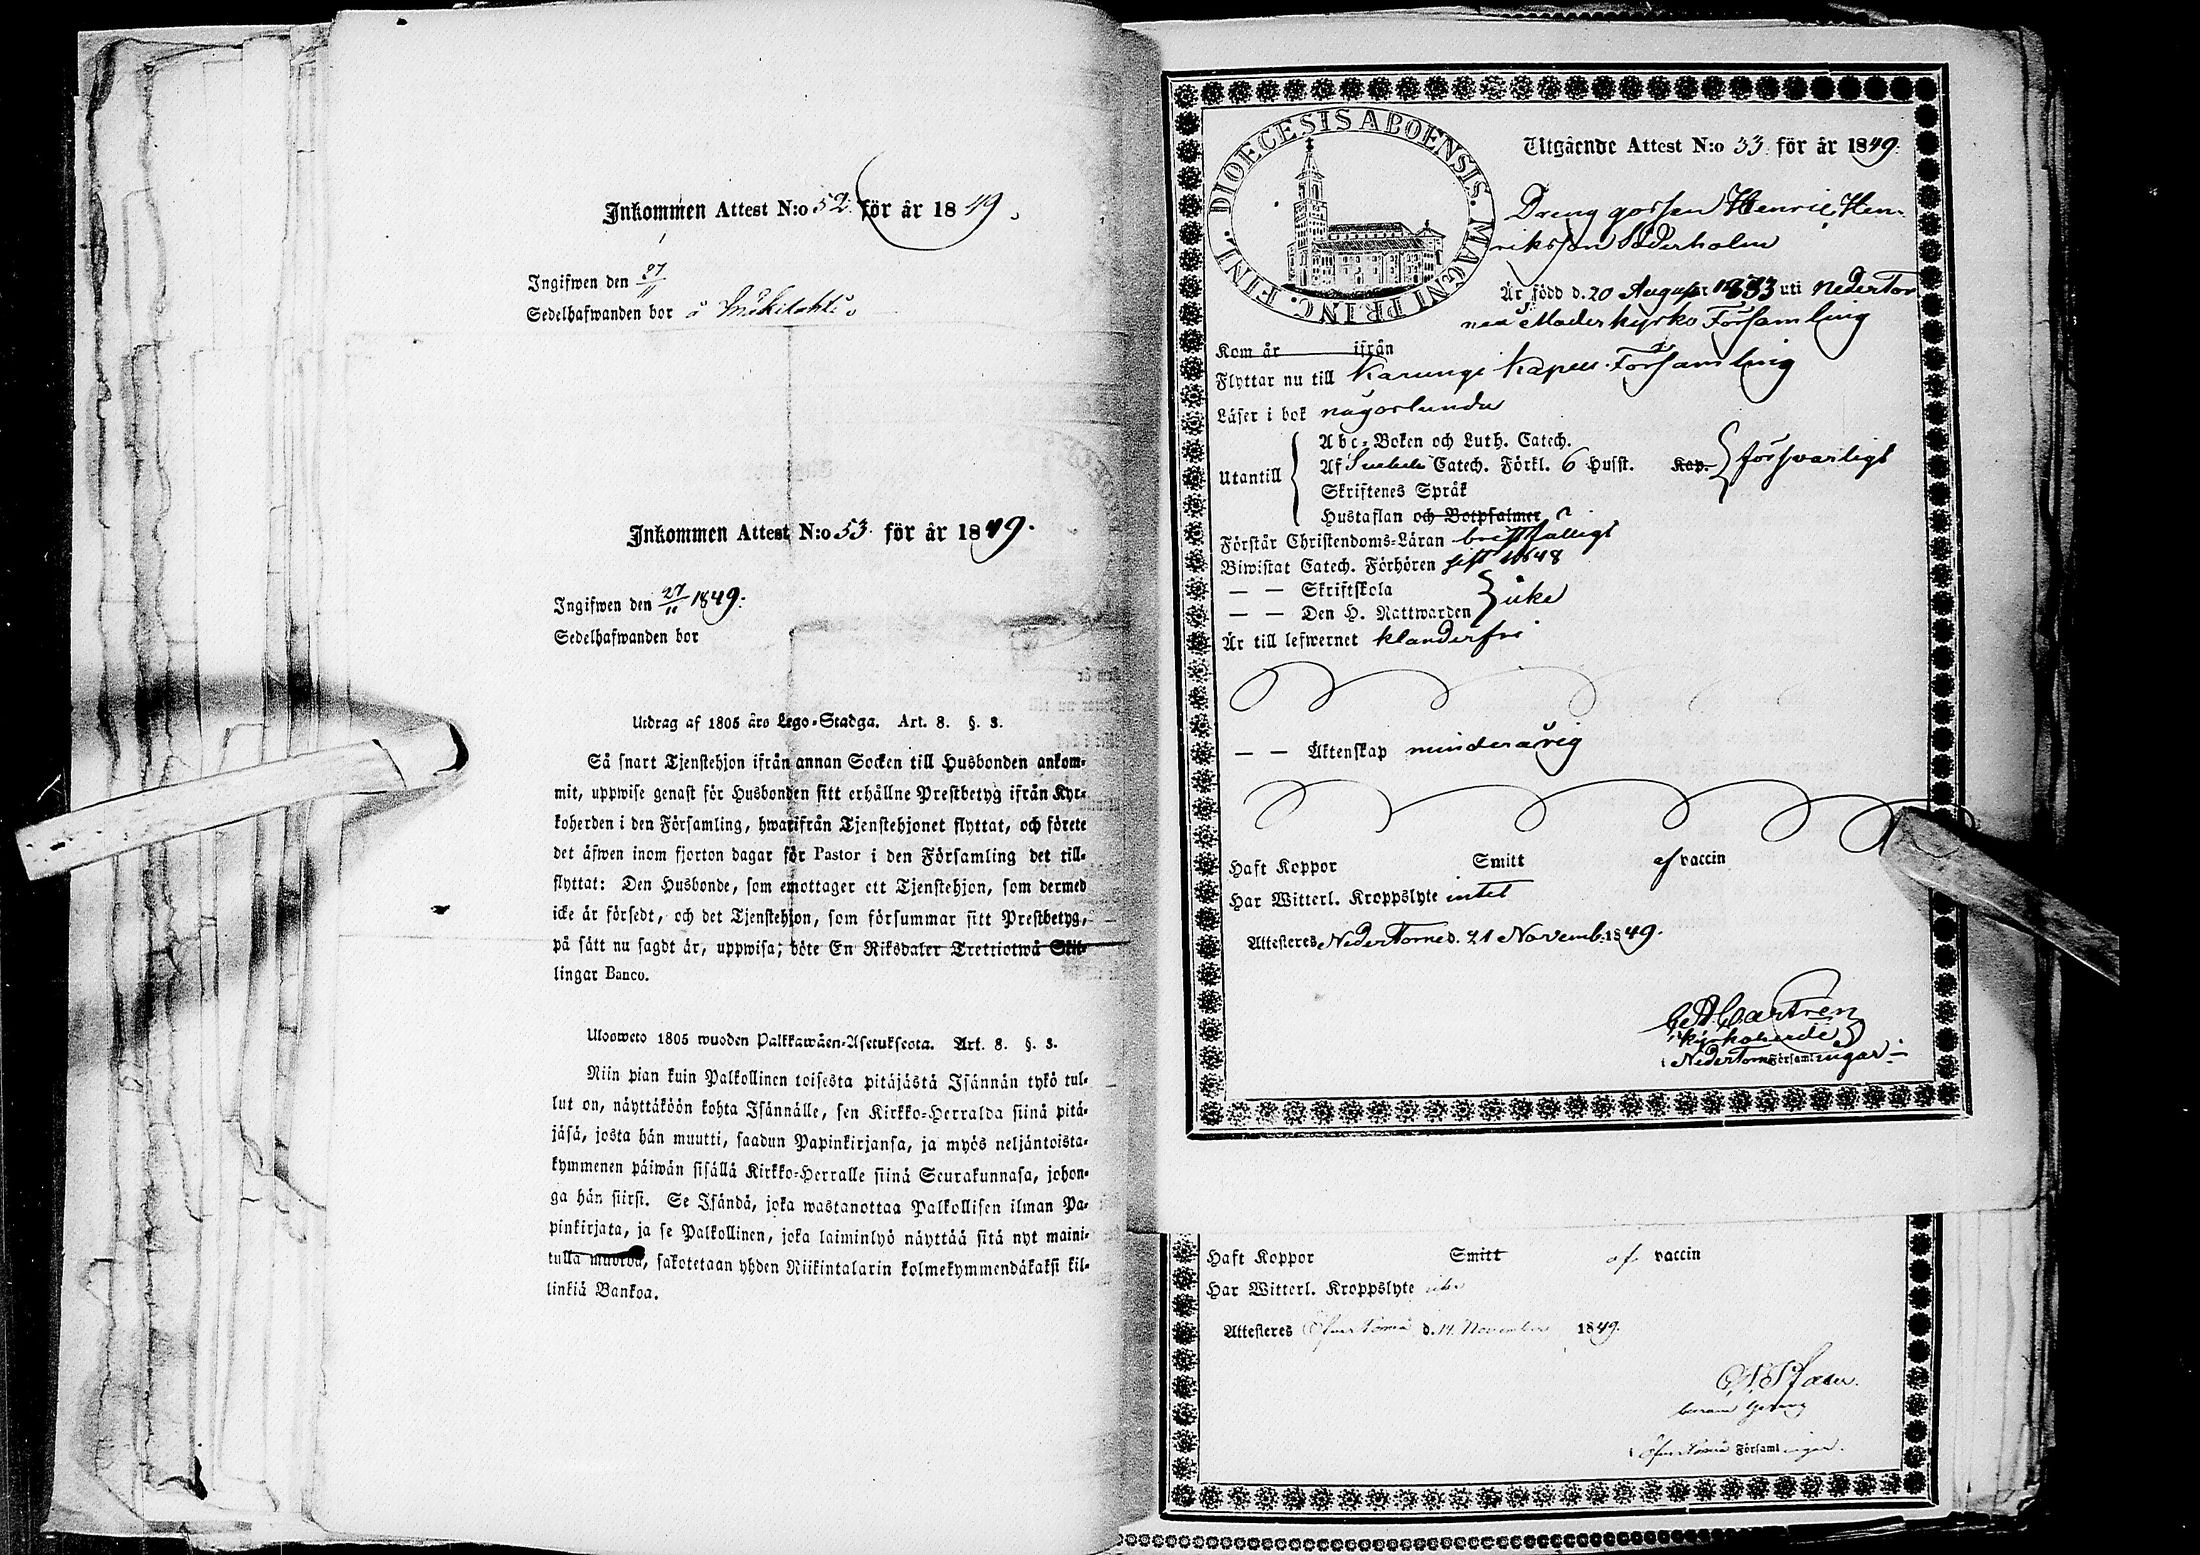 Inkommen Attest N:o 52. för år 1849.
Ingifwen den 27/11
Sedelhafwanden bor å
Inkommen Attest N:o 53. för år 1849.
Ingifwen den 27/11 1849.
Sedelhafwanden bor
Utdrag af 1805 års Lego-Stadga. Art. 8. §. 3.
Så snart Tjenstehjon ifrån annan Socken till Husbonden ankom-
mit, uppwise genast för Husbonden sitt erhållne Prestbetyg ifrån Kyr-
koherden i den Församling, hwarifrån Tjenstehjonet flyttat, och förete
det äfwen inom fjorton dagar för Pastor i den Församling det till-
flyttat: Den Husbonde, som emottager ett Tjenstehjon, som dermed
icke är försedt, och det Tjenstehjon, som försummar sitt Prestbetyg,
på sätt nu sagdt är, uppwisa, böte En Riksdaler Trettiotwå Skil-
lingar Banco.
Ulosweto 1805 wuoden Palkkawäen-Asetuksesta. Art. 8. §. 3.
Niin pian kuin Palkollinen toisesta pitäjästä Isännän tykö tul-
lut on, näyttäköön kohta Isännälle, sen Kirkko-Herralda siinä pitä-
jäsä, josta hän muutti, saadun Papinkirjansa, ja myös neljäntoista-
kymmenen päiwän sisällä Kirkko-Herralle siinä Seurakunnasa, johon-
ga hän siirsi. Se Isändä, joka wastanottaa Palkollisen ilman Pa-
pinkirjata, ja se Palkollinen, joka laiminlyö näyttää sitä nyt maini-
tulla muodda, sakotetaan yhden Riikintalarin kolmekymmendäkaksi kil-
linkiä Bankoa.
DIOECESIS ABOENSIS. MAGNI PRINC. FINL.
Utgående Attest N:o 53. för år 1849.
Dreng gossen Henric Hen-
riksson Söderholm
Är född d. 20 August 1833 uti Neder Tor
neå Moderkyrko Församling
Kom år ifrån
Flyttar nu till Karungi Kapell Församling
Läser i bok någorlunda
Utantill
Abc-Boken och Luth. Catech.
Af Svebelii Catech. Förkl. 6 Husst. Kap. försvarligt
Skriftenes Språk
Hustaflan och Botpsalmer
Förstår Christendoms-Läran bristfälligt
Biwistat Catech. Förhören sist 1848
— — Skriftskola
— — Den H. Nattwarden icke
Är till lefwernet klanderfri
— — Äktenskap minderårig
Haft Koppor Smitt af vaccin
Har Witterl. Kroppslyte intet
Attesteres Neder Torneå d. 21 Novemb. 1849.
C A Castrén
Kyrkoherde
i Neder Torneå Församlingar
Haft Koppor Smitt af vaccin
Har Witterl. Kroppslyte
Attesteres Öfver Torneå d. 14 November 1849.
i Öfver Torneå Församlingar.